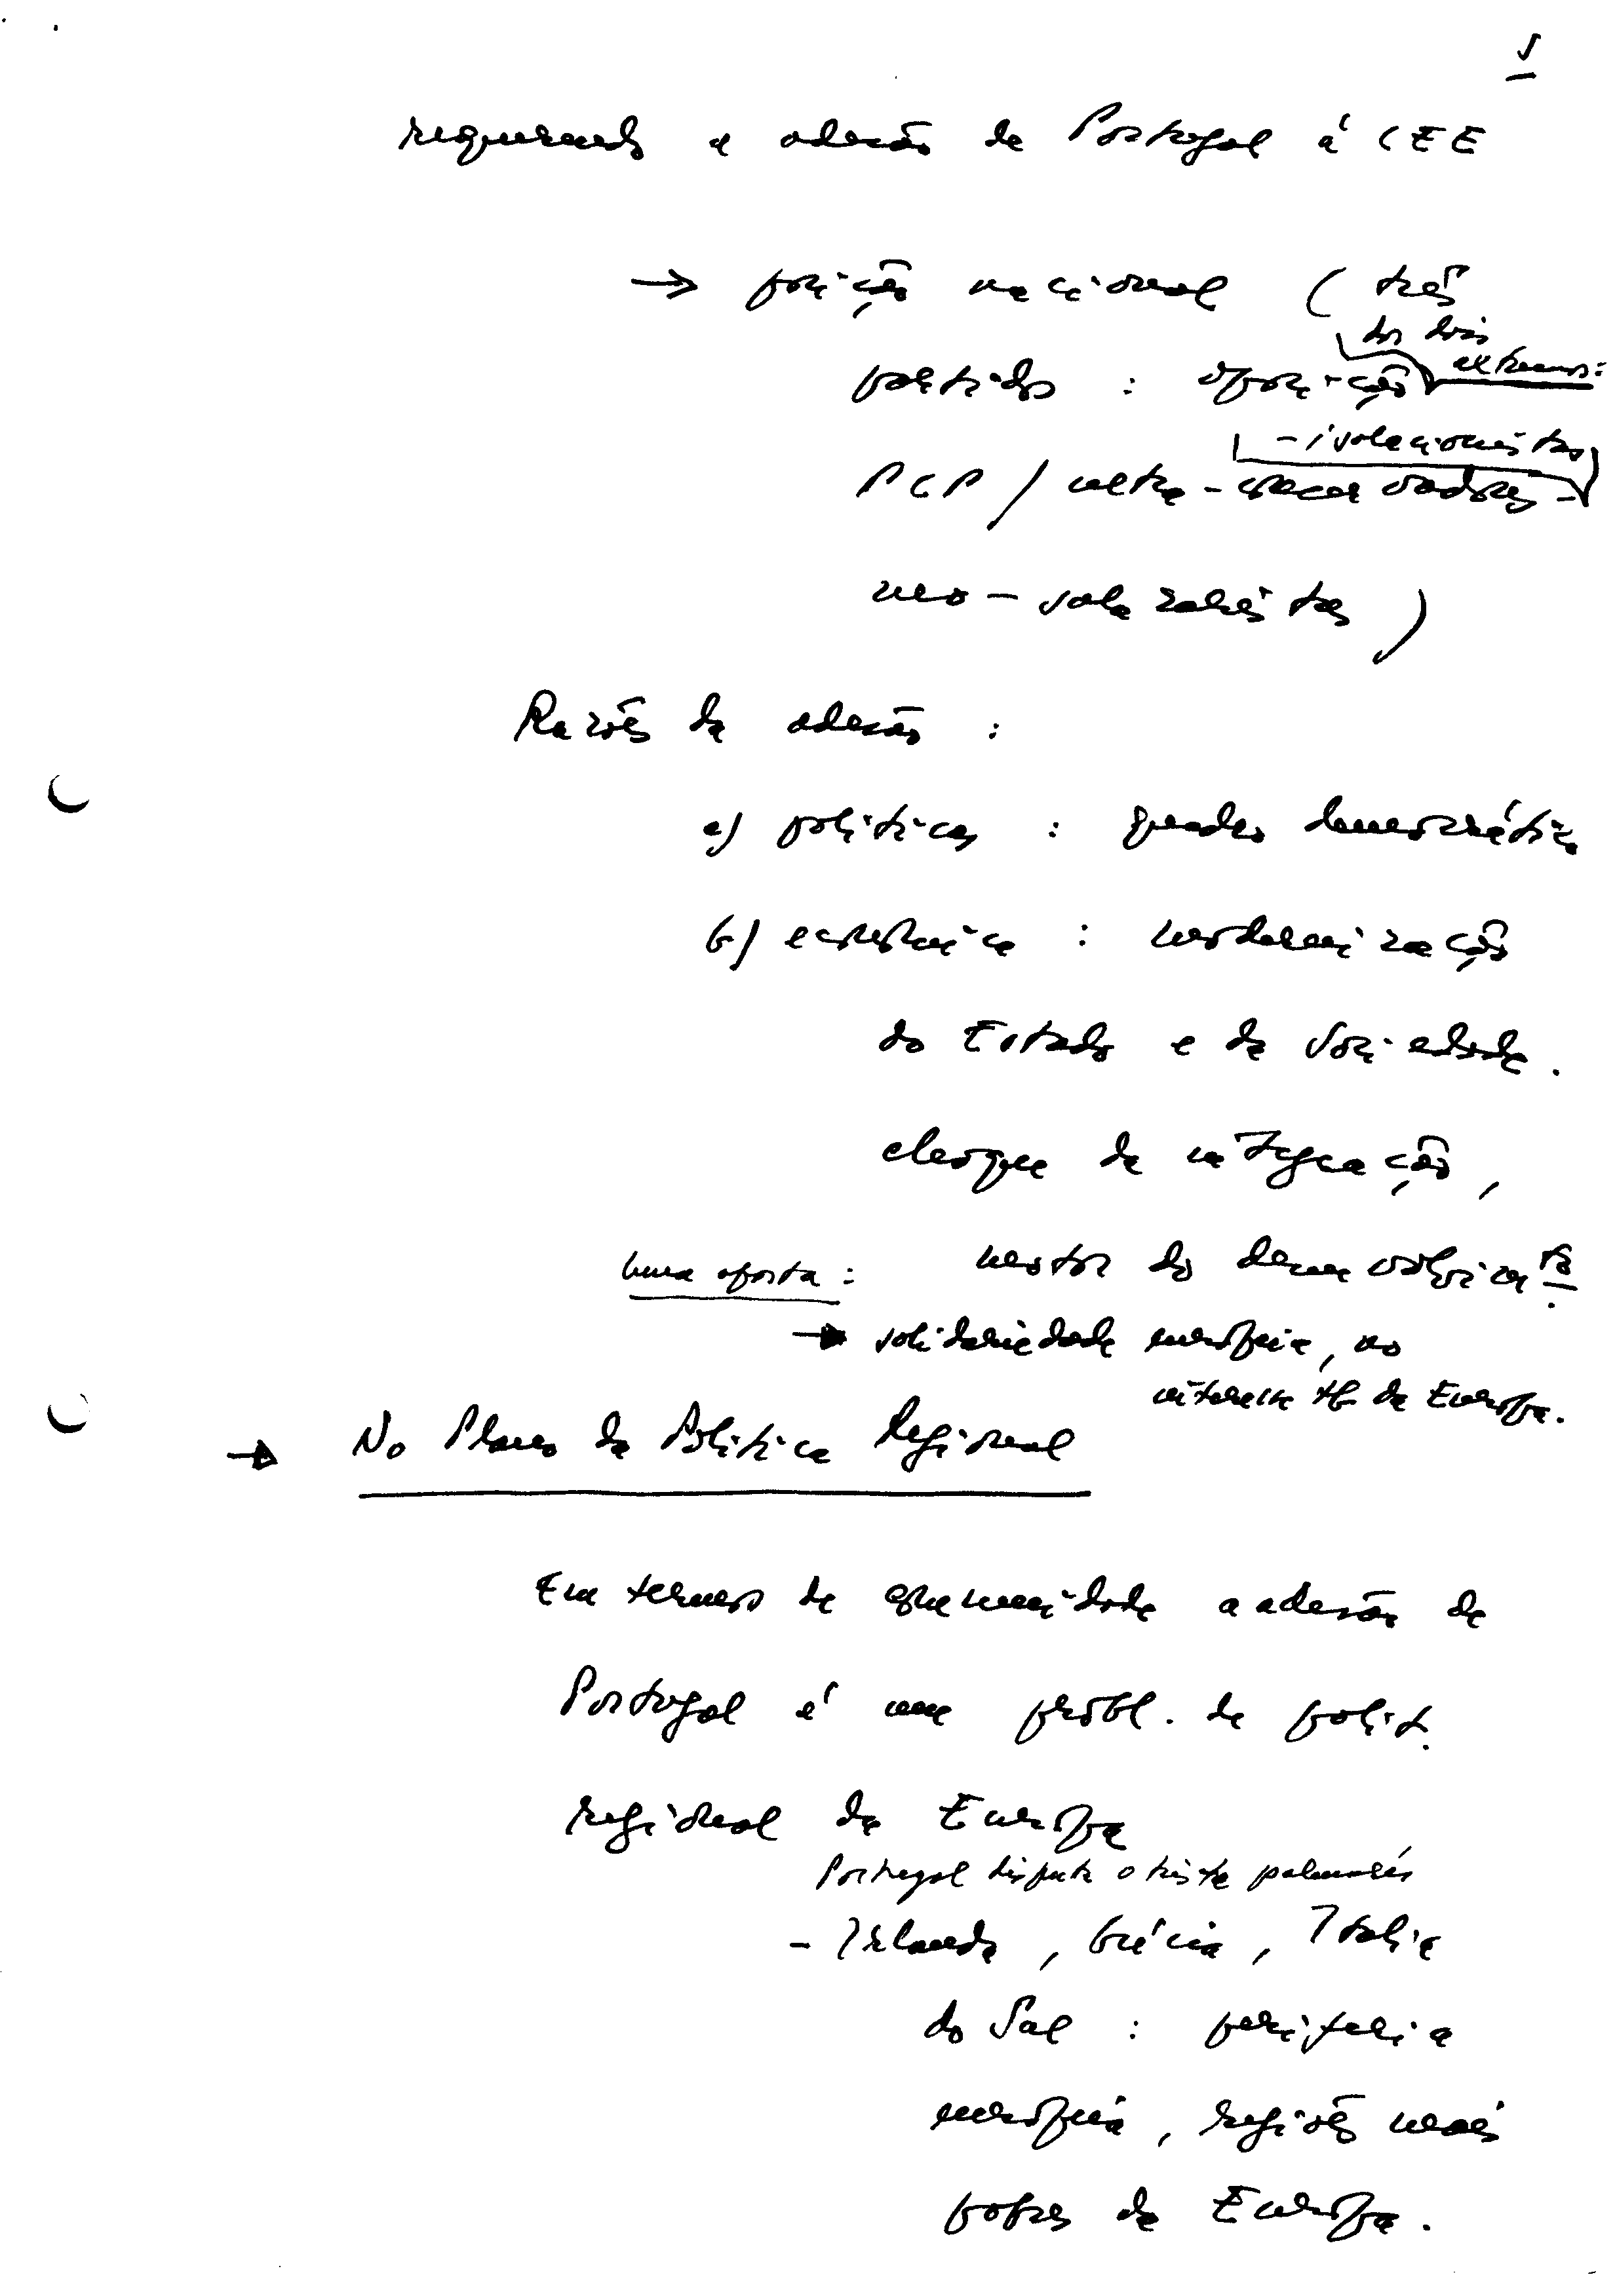 5
requerendo a adesão de Portugal à CEE
→ posição nacional (três
dos dois
partidos : oposição extremos:
- isolacionistas
PCP / ultra-conservadores -
neo-salazaristas)
Razões da adesão :
a) políticas : quadro democrático
b) económica : modernização
do Estado e da Sociedade.
choque da integração,
uma aposta : motor do desenvolvimto.
→ solidariedade europeia, no
interesse tb da Europa.
→ No Plano da Política Regional
Em termos de Comunidade a adesão de
Portugal é um probl. de polit.
regional da Europa
Portugal disputa o triste palmarés
- Irlanda, Grécia, Itália
do Sul : periferia
europeia, regiões mais
pobres da Europa.